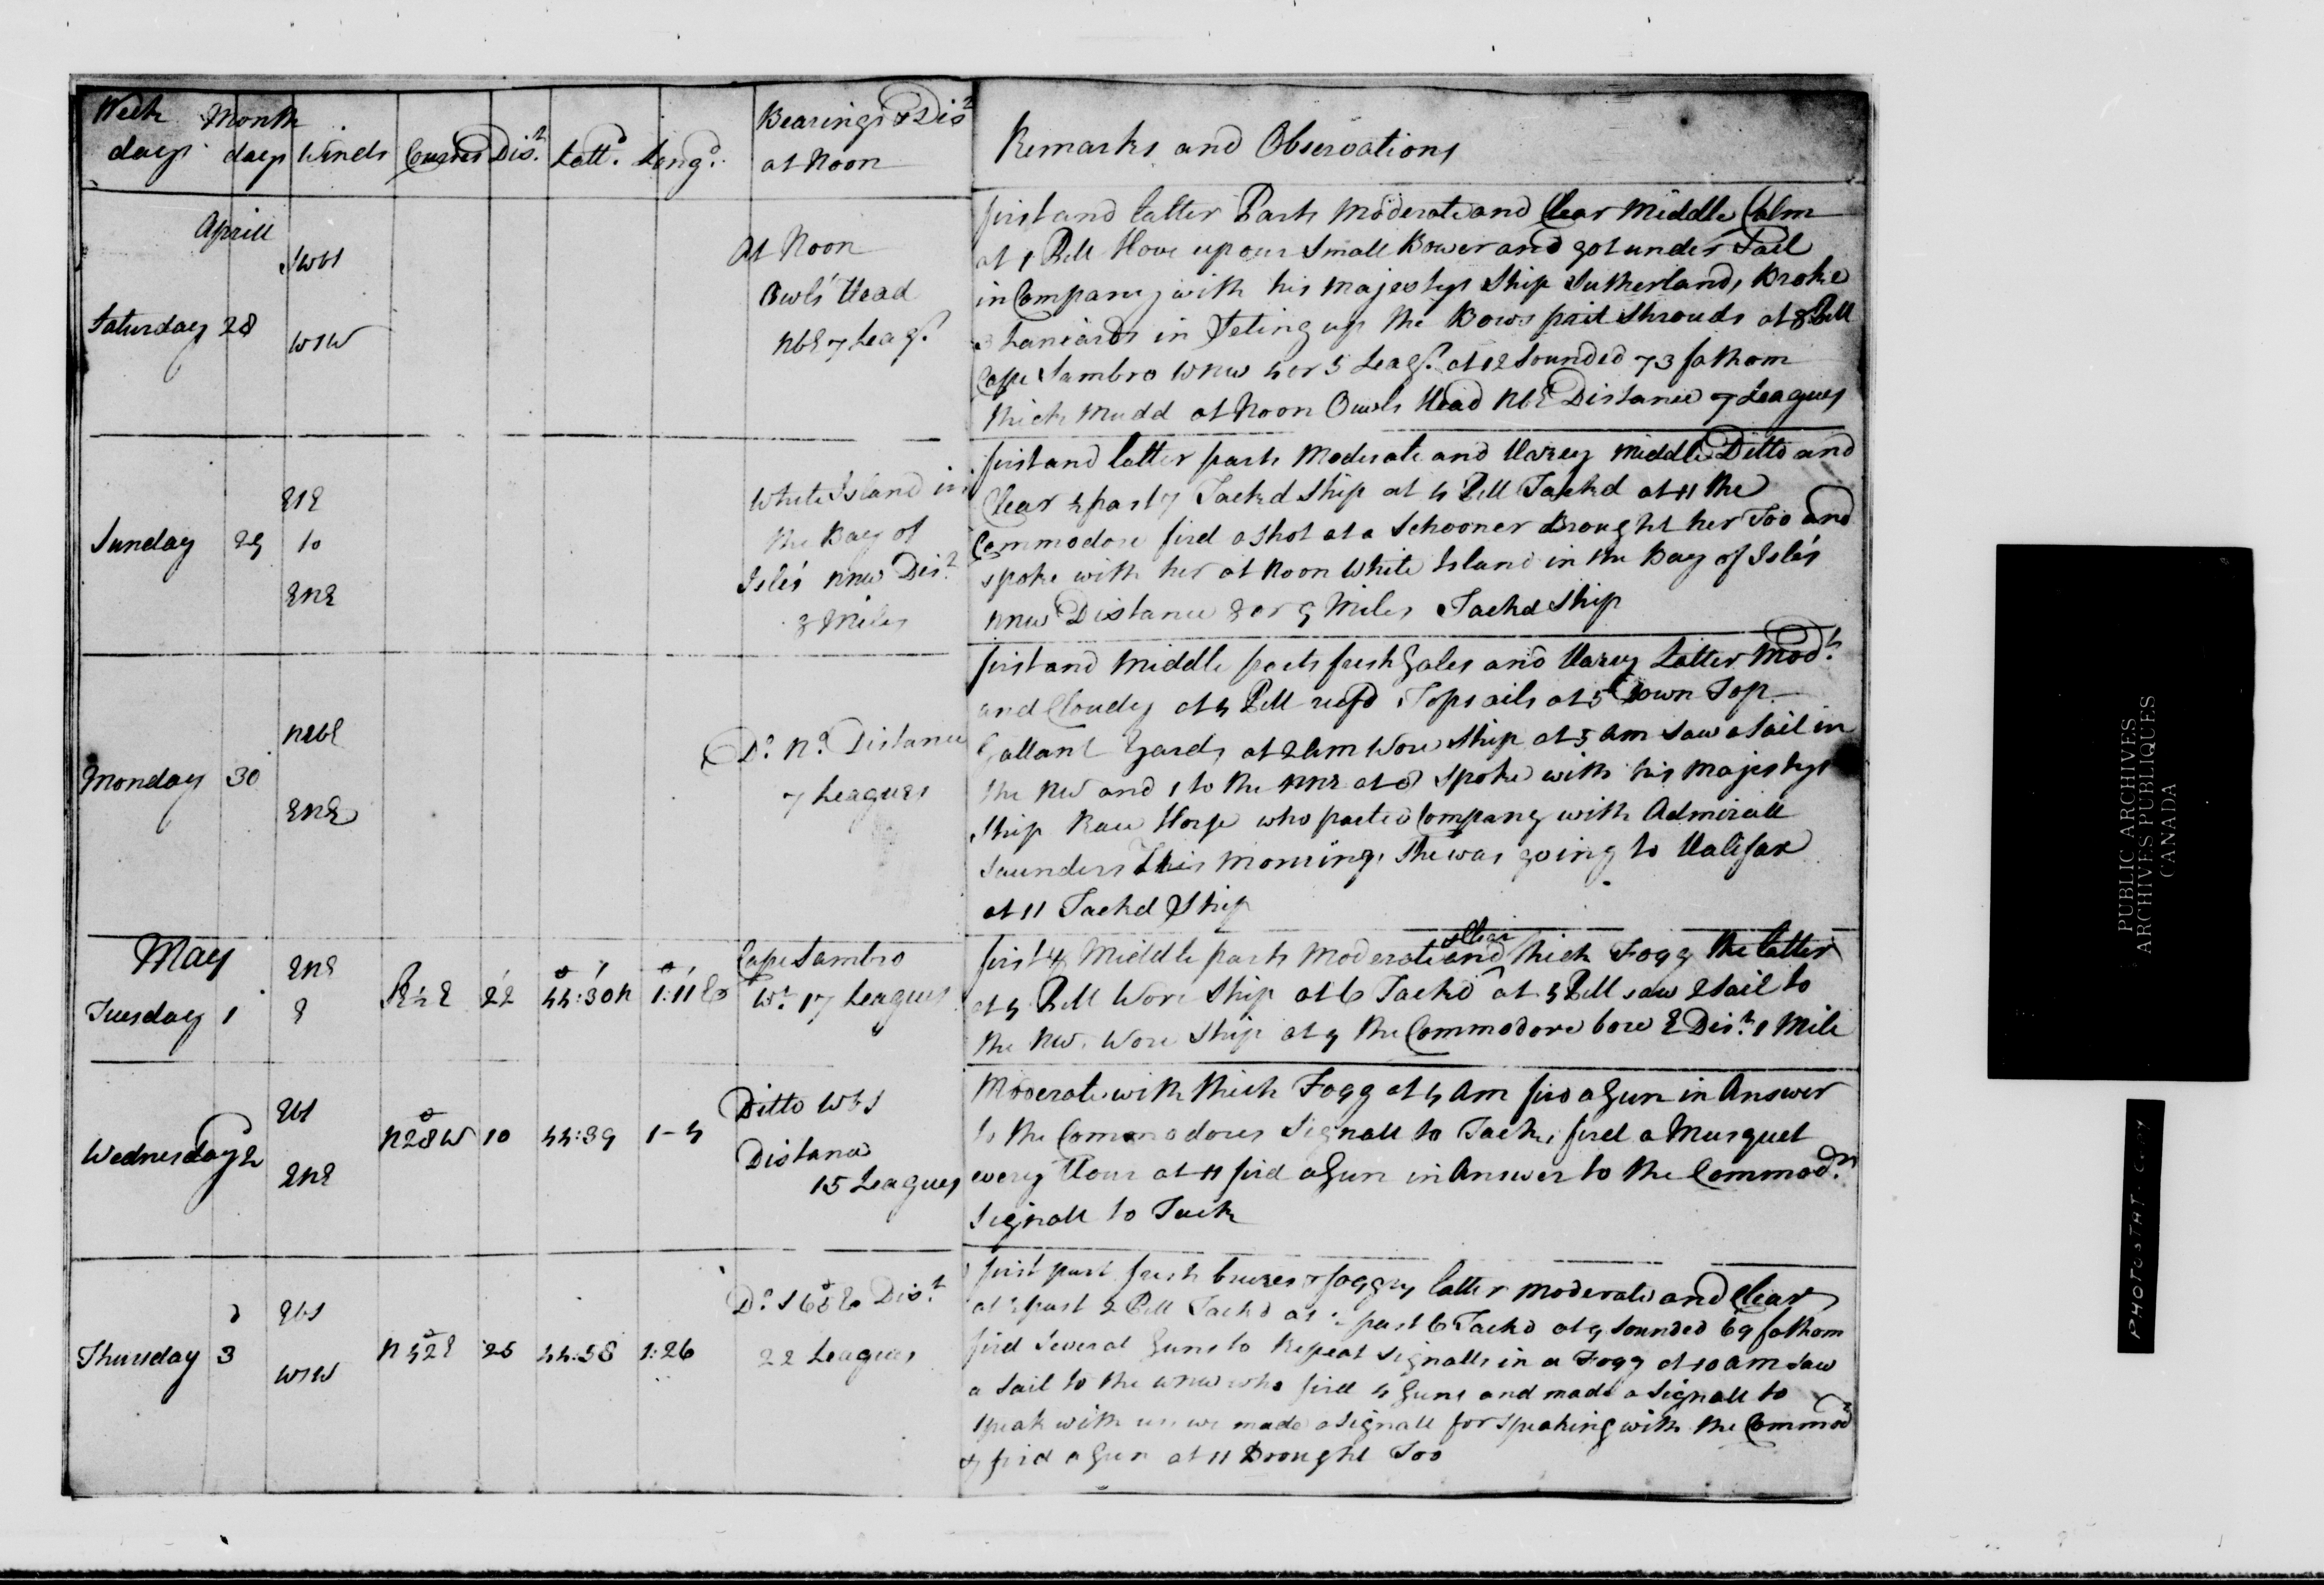 Week days
Month days
Winds
Courses
Dist
Lattd.
Longd.
Bearings & Dist
at Noon
Remarks and Observations
Aprill
Saturday 28
SWbS
WSW
At Noon
Owls Head
NbE 7 Leags.
first and latter Parts Moderate and Clear Middle Calm
at 1 PM Hove up our Small Bower and got under Sail
in Company with his Majestys Ship Sutherland, Broke
3 Laniards in Seting up the Bows prit Shrouds at 8 PM
Cape Sambro WNW 4 or 5 Leags. at 12 Sounded 73 fathom
thick Mudd at Noon Owls Head NbE Distance 7 Leagues
Sunday 29
ESE
to
ENE
White Island in
the Bay of
Isle's NNW Dist.
8 Miles
first and latter parts Moderate and Hazey Middle Ditto and
Clear ½ past 7 Tackd Ship at 4 PM Tackd at 11 the
Commodore fird a Shot at a Schooner Brought her Too and
spoke with her at Noon White Island in the Bay of Isle's
NNW Distance 8 or 9 Miles Tackd Ship
Monday 30
NEbE
ENE
Do. No. Distance
7 Leagues
first and Middle parts fresh Gales and Hazey Latter Modt.
and Cloudy at 4 PM reefd Topsails at 5 Down Top
Gallant Yards at 2 am Wore Ship at 5 am Saw a Sail in
the NW and 1 to the NNE at 8 spoke with his Majestys
Ship Race Horse who parted Company with Admirall
Saunders This Morning, She was going to Halifax
at 11 Tackd Ship
May
Tuesday 1
ENE
E
S½E
22
44:30N
1:11E
Cape Sambro
Wt. 17 Leagues
first & Middle parts Moderate and Clear thick Fogg the latter
at 4 PM Wore Ship at 6 Tackd at 5 PM saw 2 Sail to
the NW. Wore Ship at 9 the Commodore bore E Dist. 1 Mile
Wednesday 2
EbS
ENE
N28W
10
44:39
1-4
Ditto WbS
Distance
15 Leagues
Moderate with thick Fogg at 4 am fird a Gun in Answer
to the Commodores Signall to Tack, fired a Musquet
every Hour at 11 fird a Gun in Answer to the Commodrs.
Signall to Tack
Thursday 3
EbS
WSW
N42E
25
44:58
1:26
Do. S65E Dist.
22 Leagues
first part fresh breezes & foggy latter Moderate and Clear
at ½ past 2 PM Tackd at ½ past 6 Tackd at 9 Sounded 69 fathom
fird Several Guns to Repeat Signalls in a Fogg at 10 am Saw
a Sail to the WNW who fired 4 Guns and made a Signall to
speak with us we made a Signall for speaking with the Commod
& fird a Gun at 11 Brought Too
PUBLIC ARCHIVES
ARCHIVES PUBLIQUES
CANADA
PHOTOSTAT COPY